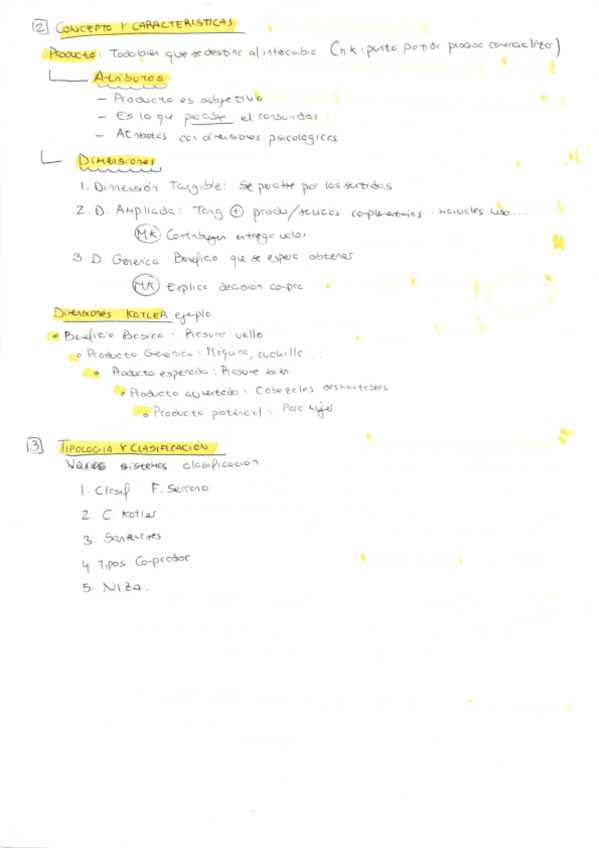 2 CONCEPTO Y CARACTERISTICAS
Producto: Todo bien que se destina al intercabio (mk: punto partida proceso comercializar)
Atributos
- Producto es subjetivo
- Es lo que percibe el consumidor
- Atributos con dimensiones psicológicas
Dimensiones
1. Dimensión Tangible: Se percibe por los sentidos
2. D. Ampliada: Tang + produ/ complementarios: manuales uso...
MK Contribuyen entrega valor
3. D. Generica Beneficio que se espera obtener
MK Explica decisión compra
Dimensiones KOTLER ejemplo
Beneficio Basico: Rasurar vello
Producto Genérico: Maquina, cuchilla...
Producto esperado: Rasure bien
Producto aumentado: Cabezales desmontables
Producto potencial: Para mujer
3 TIPOLOGIA Y CLASIFICACIÓN
Varios sistemas clasificación
1. Clasif F. Serrano
2. C. Kotler
3. Santesmases
4 Tipos Comprador
5. NIZA.